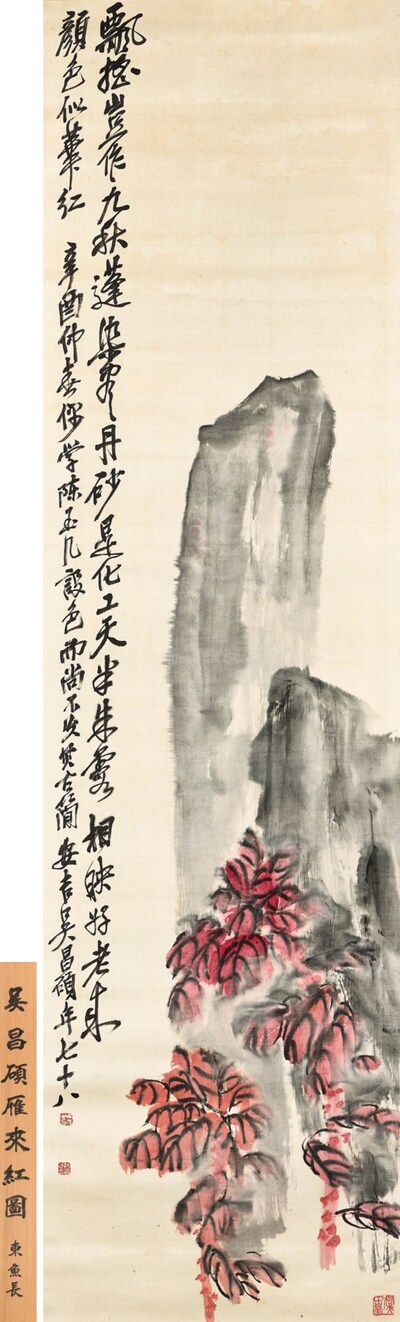 飄搖豈作九秋蓬染露丹砂是化工天半朱霞相映好老來
顏色似華紅 辛酉仲春偶學陳玉几設色而尚不及其古簡安吉吳昌碩年七十八
吳昌碩雁來紅圖
東魚長